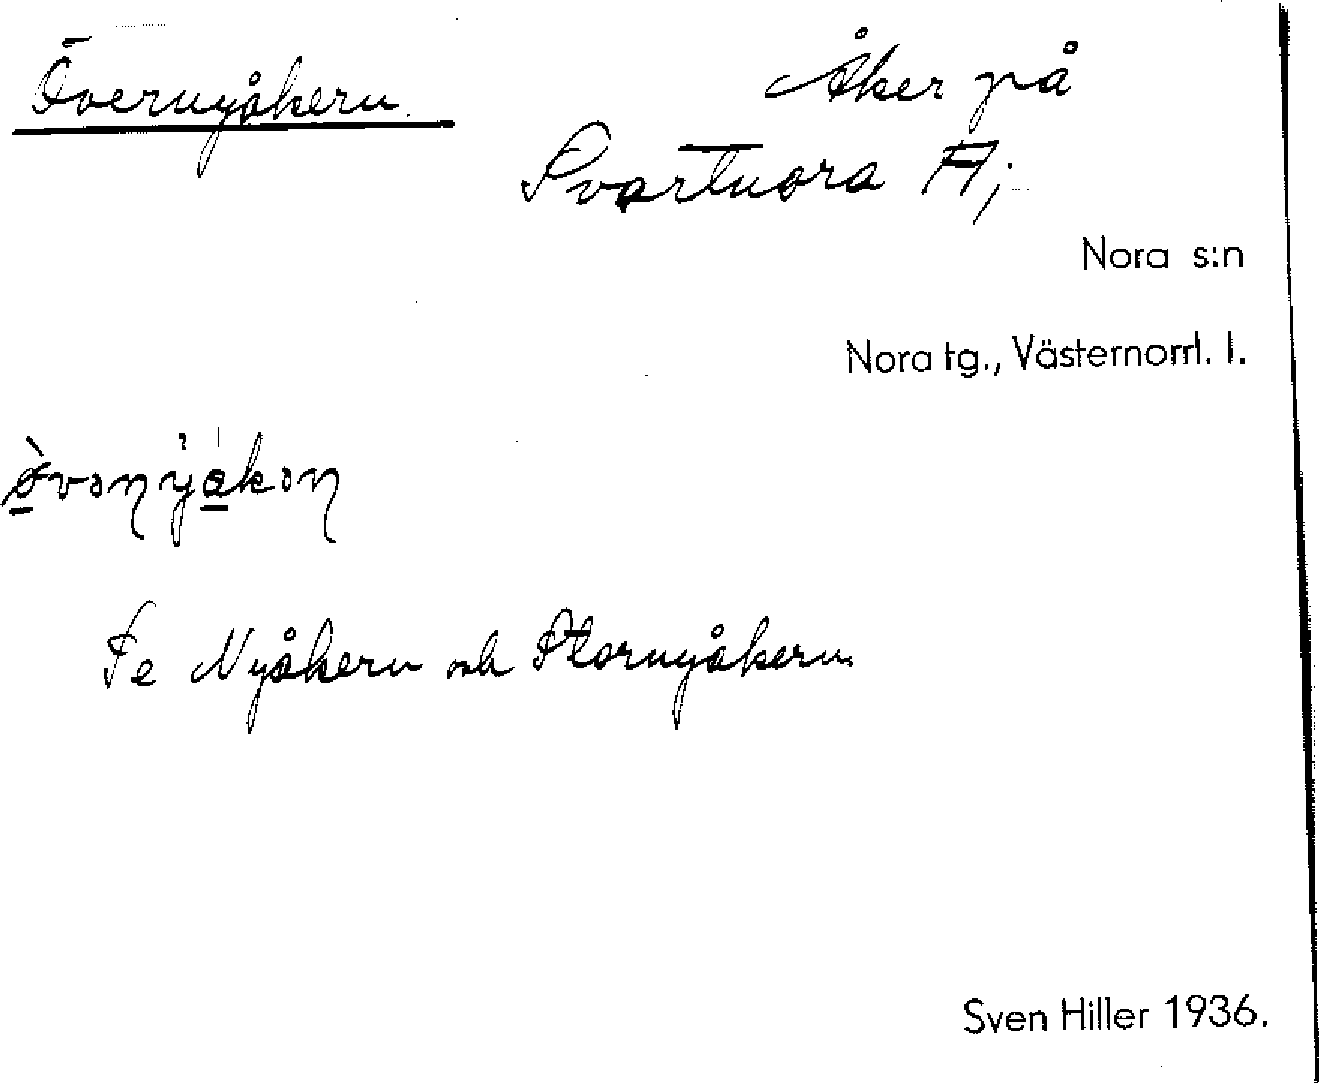 Övernyåkern.
Åker på
Svartnora A;
Nora s:n
Nora tg., Västernorrl. l.
Se Nyåkern och Stornyåkern.
Sven Hiller 1936.